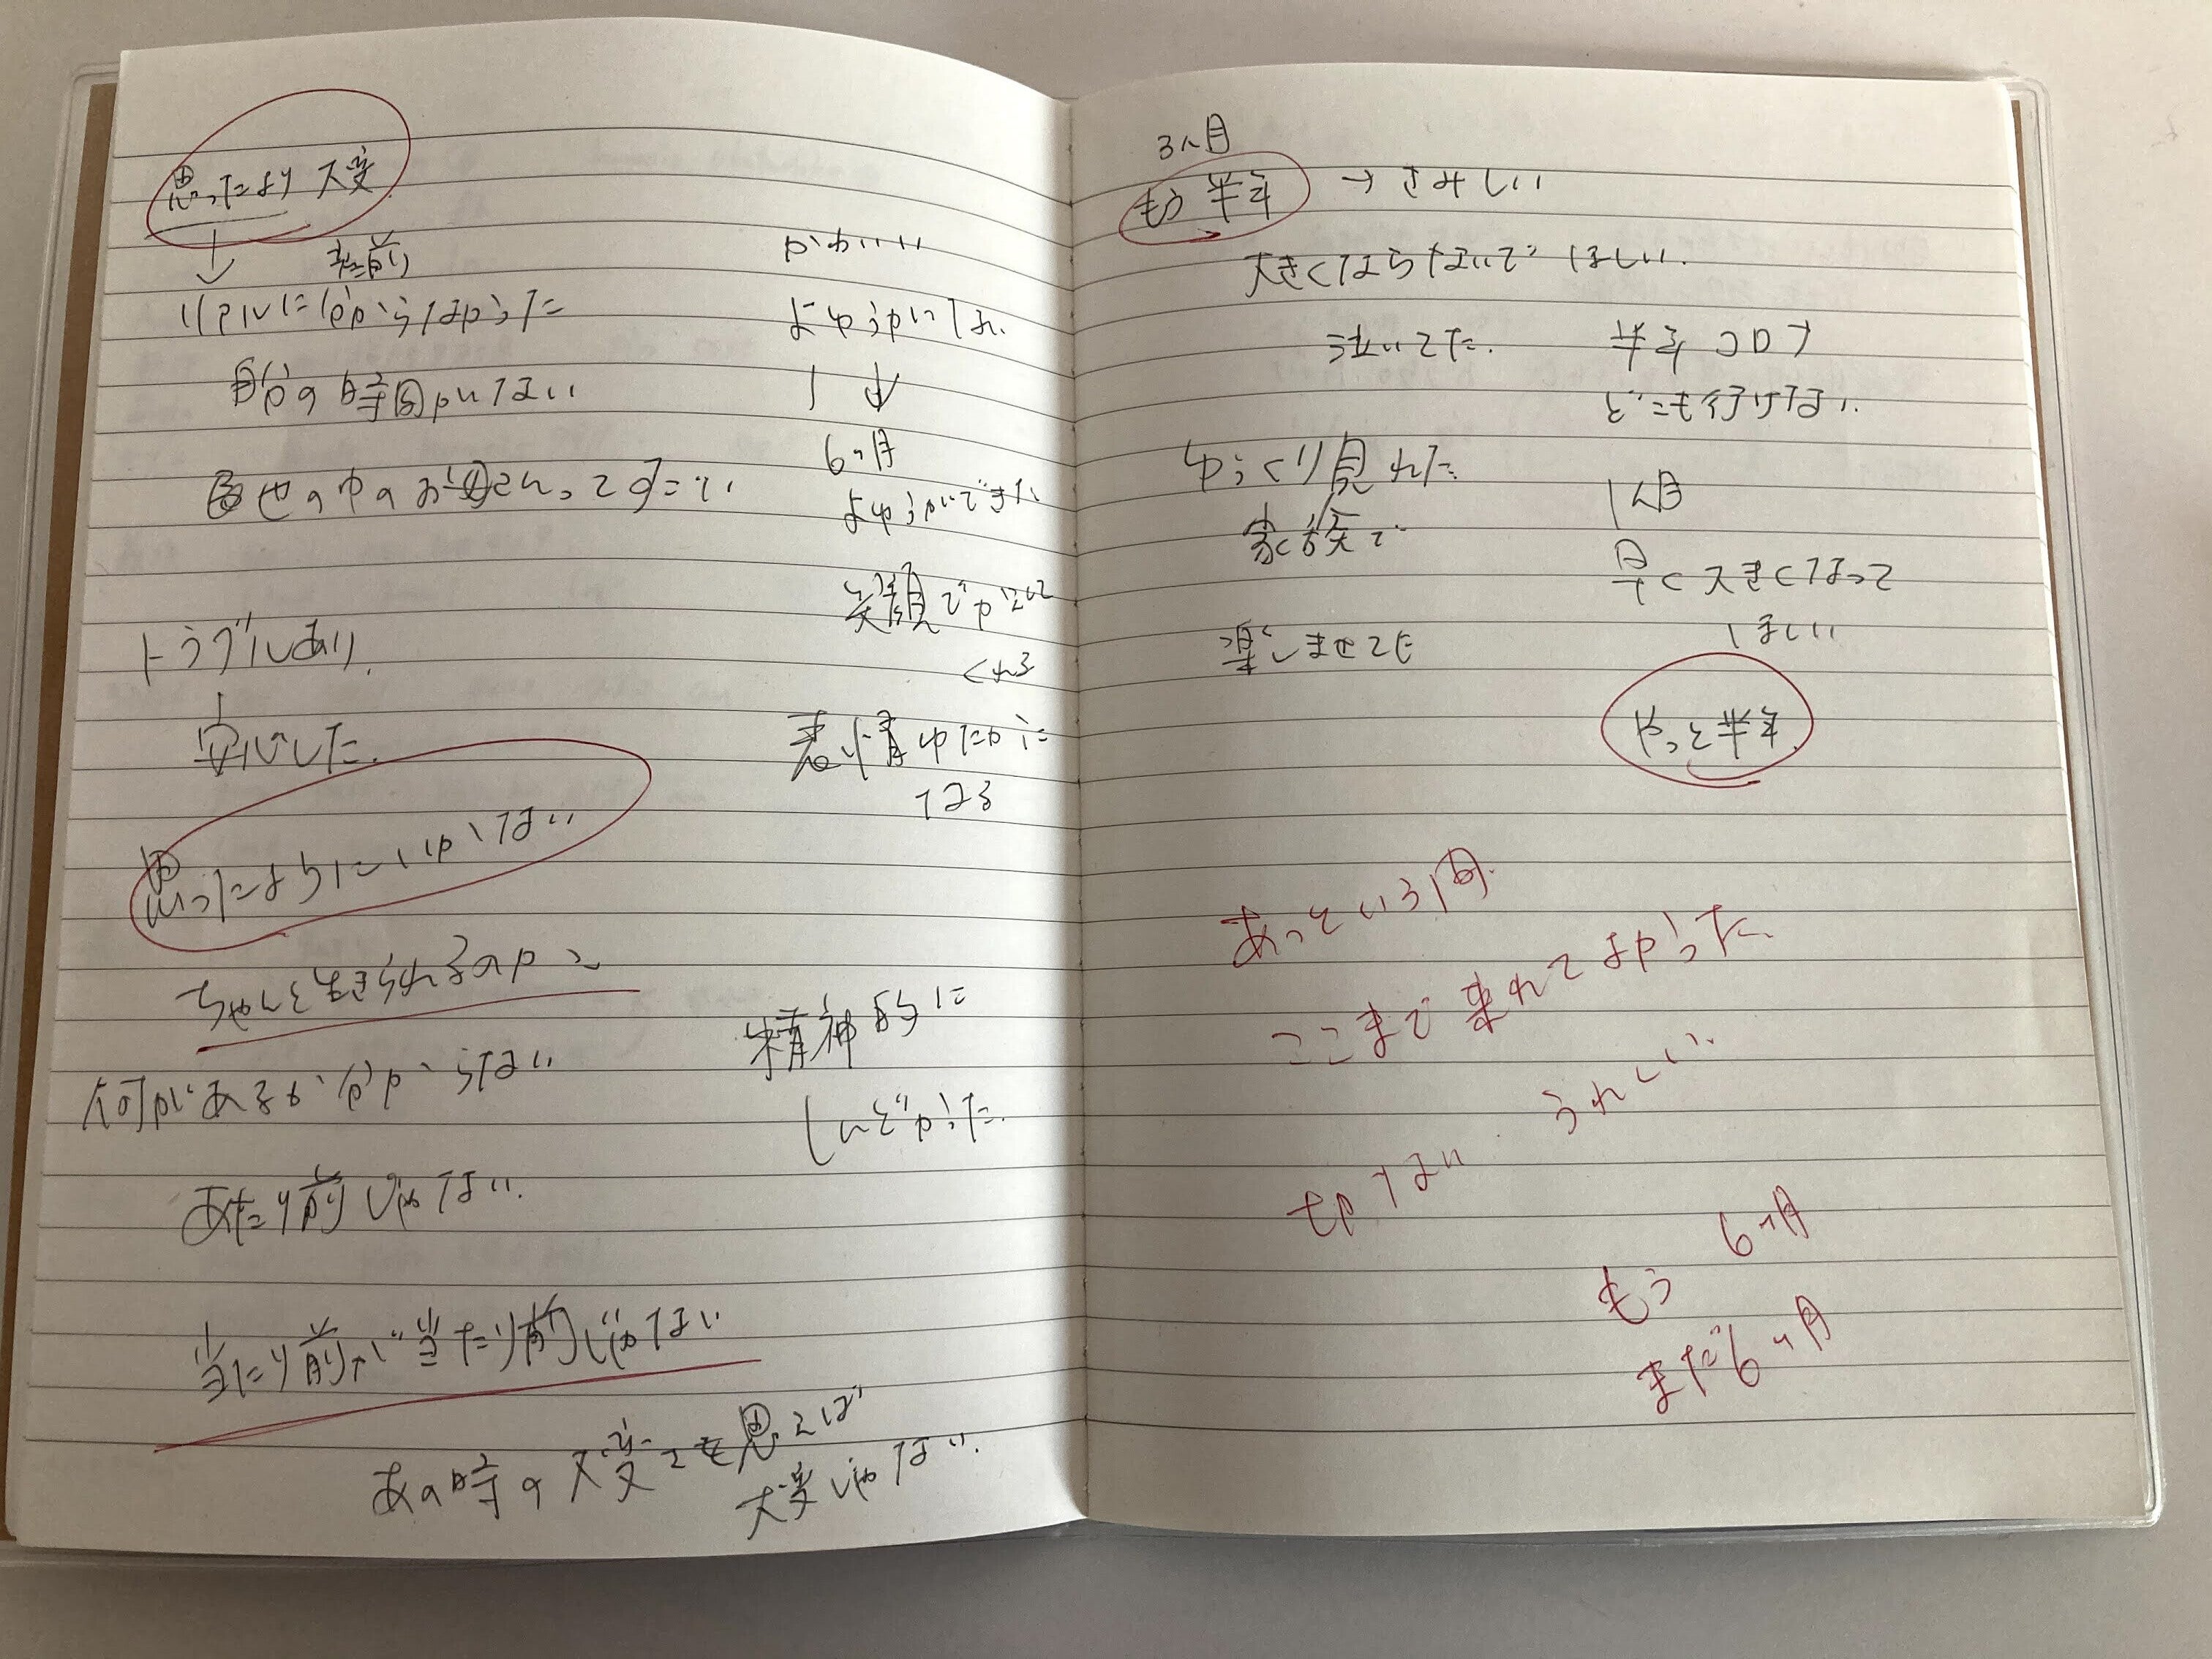 思ったより大変
↓
産前
リアルに分からなかった
自分の時間がない
世の中のお母さんってすごい
トラブルあり.
安心した.
思ったようにいかない
ちゃんと生きられるのか
何があるか分からない
あたり前じゃない.
当たり前が当たり前じゃない
あの時の大変さを思えば
大変じゃない.
かわいい
よゆうがない.
↓
6ヶ月
よゆうがでてきた
笑顔で
くれる
表情ゆたかに
なる
精神的に
しんどかった.
3ヶ月
もう半年 → さみしい
大きくならないでほしい.
泣いてた.
ゆっくり見れた
家族で
楽しませてた
半年コロナ
どこも行けない.
1ヶ月
早く大きくなって
ほしい
やっと半年.
あっという間.
ここまで来れてよかった.
うれしい.
せつない
もう 6ヶ月
まだ6ヶ月